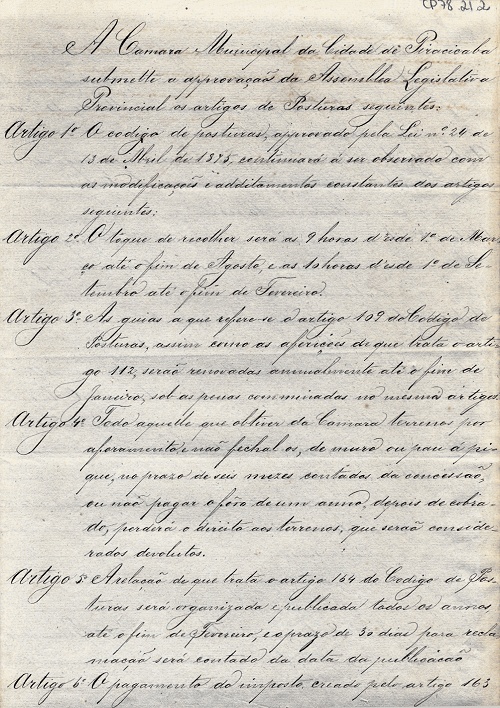 CP78.21.2
A Camara Municipal da Cidade de Piracicaba
submette a approvação da Assemblea Legislativa
Provincial os artigos de Posturas seguintes:
Artigo 1º O codigo de posturas, approvado pela Lei nº 24 de
13 de Abril de 1875, continuará á ser observado com
as modificações e additamentos constantes dos artigos
seguintes:
Artigo 2º O toque de recolher será as 9 horas d'esde 1º de Mar-
ço até o fim de Agosto, e as 10 horas d'esde 1º de Se-
tembro até o fim de Fevereiro.
Artigo 3º As guias a que refere-se o artigo 109 do Codigo de
Posturas, assim como as aferições de que trata o arti-
go 112, serão renovadas annualmente até o fim de
Janeiro, sob as penas comminadas no mesmo artigos.
Artigo 4º Todo aquelle que obtiver da Camara terrenos por
aforamento, e não fechal os, de muro ou pau á pi-
que, no prazo de seis mezes contados da concessão,
ou não pagar o fôro de um anno, depois de cobra-
do, perderá o direito aos terrenos, que serão conside-
rados devolutos.
Artigo 5º A relação de que trata o artigo 164 do Codigo de Pos-
turas será organizada e publicada todos os annos
até o fim de Fevereiro, e o prazo de 30 dias para recla-
mação será contado da data da publicação
Artigo 6º O pagamento do imposto, creado pelo artigo 163